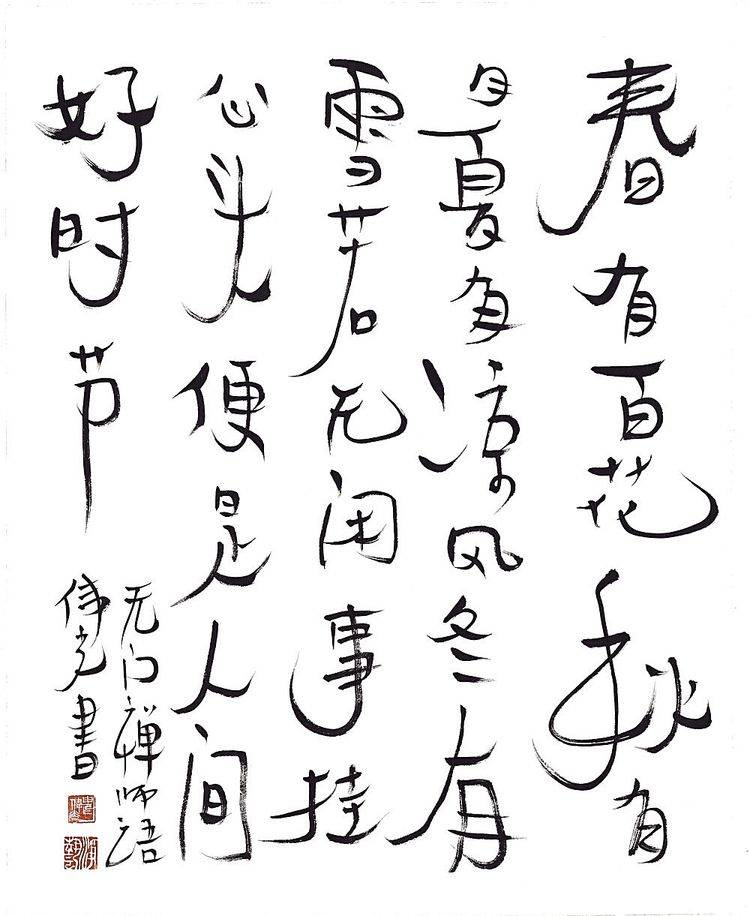 春有百花秋有
月夏有凉风冬有
雪若无闲事挂
心头便是人间
好时节
无门禅师语
伟光書